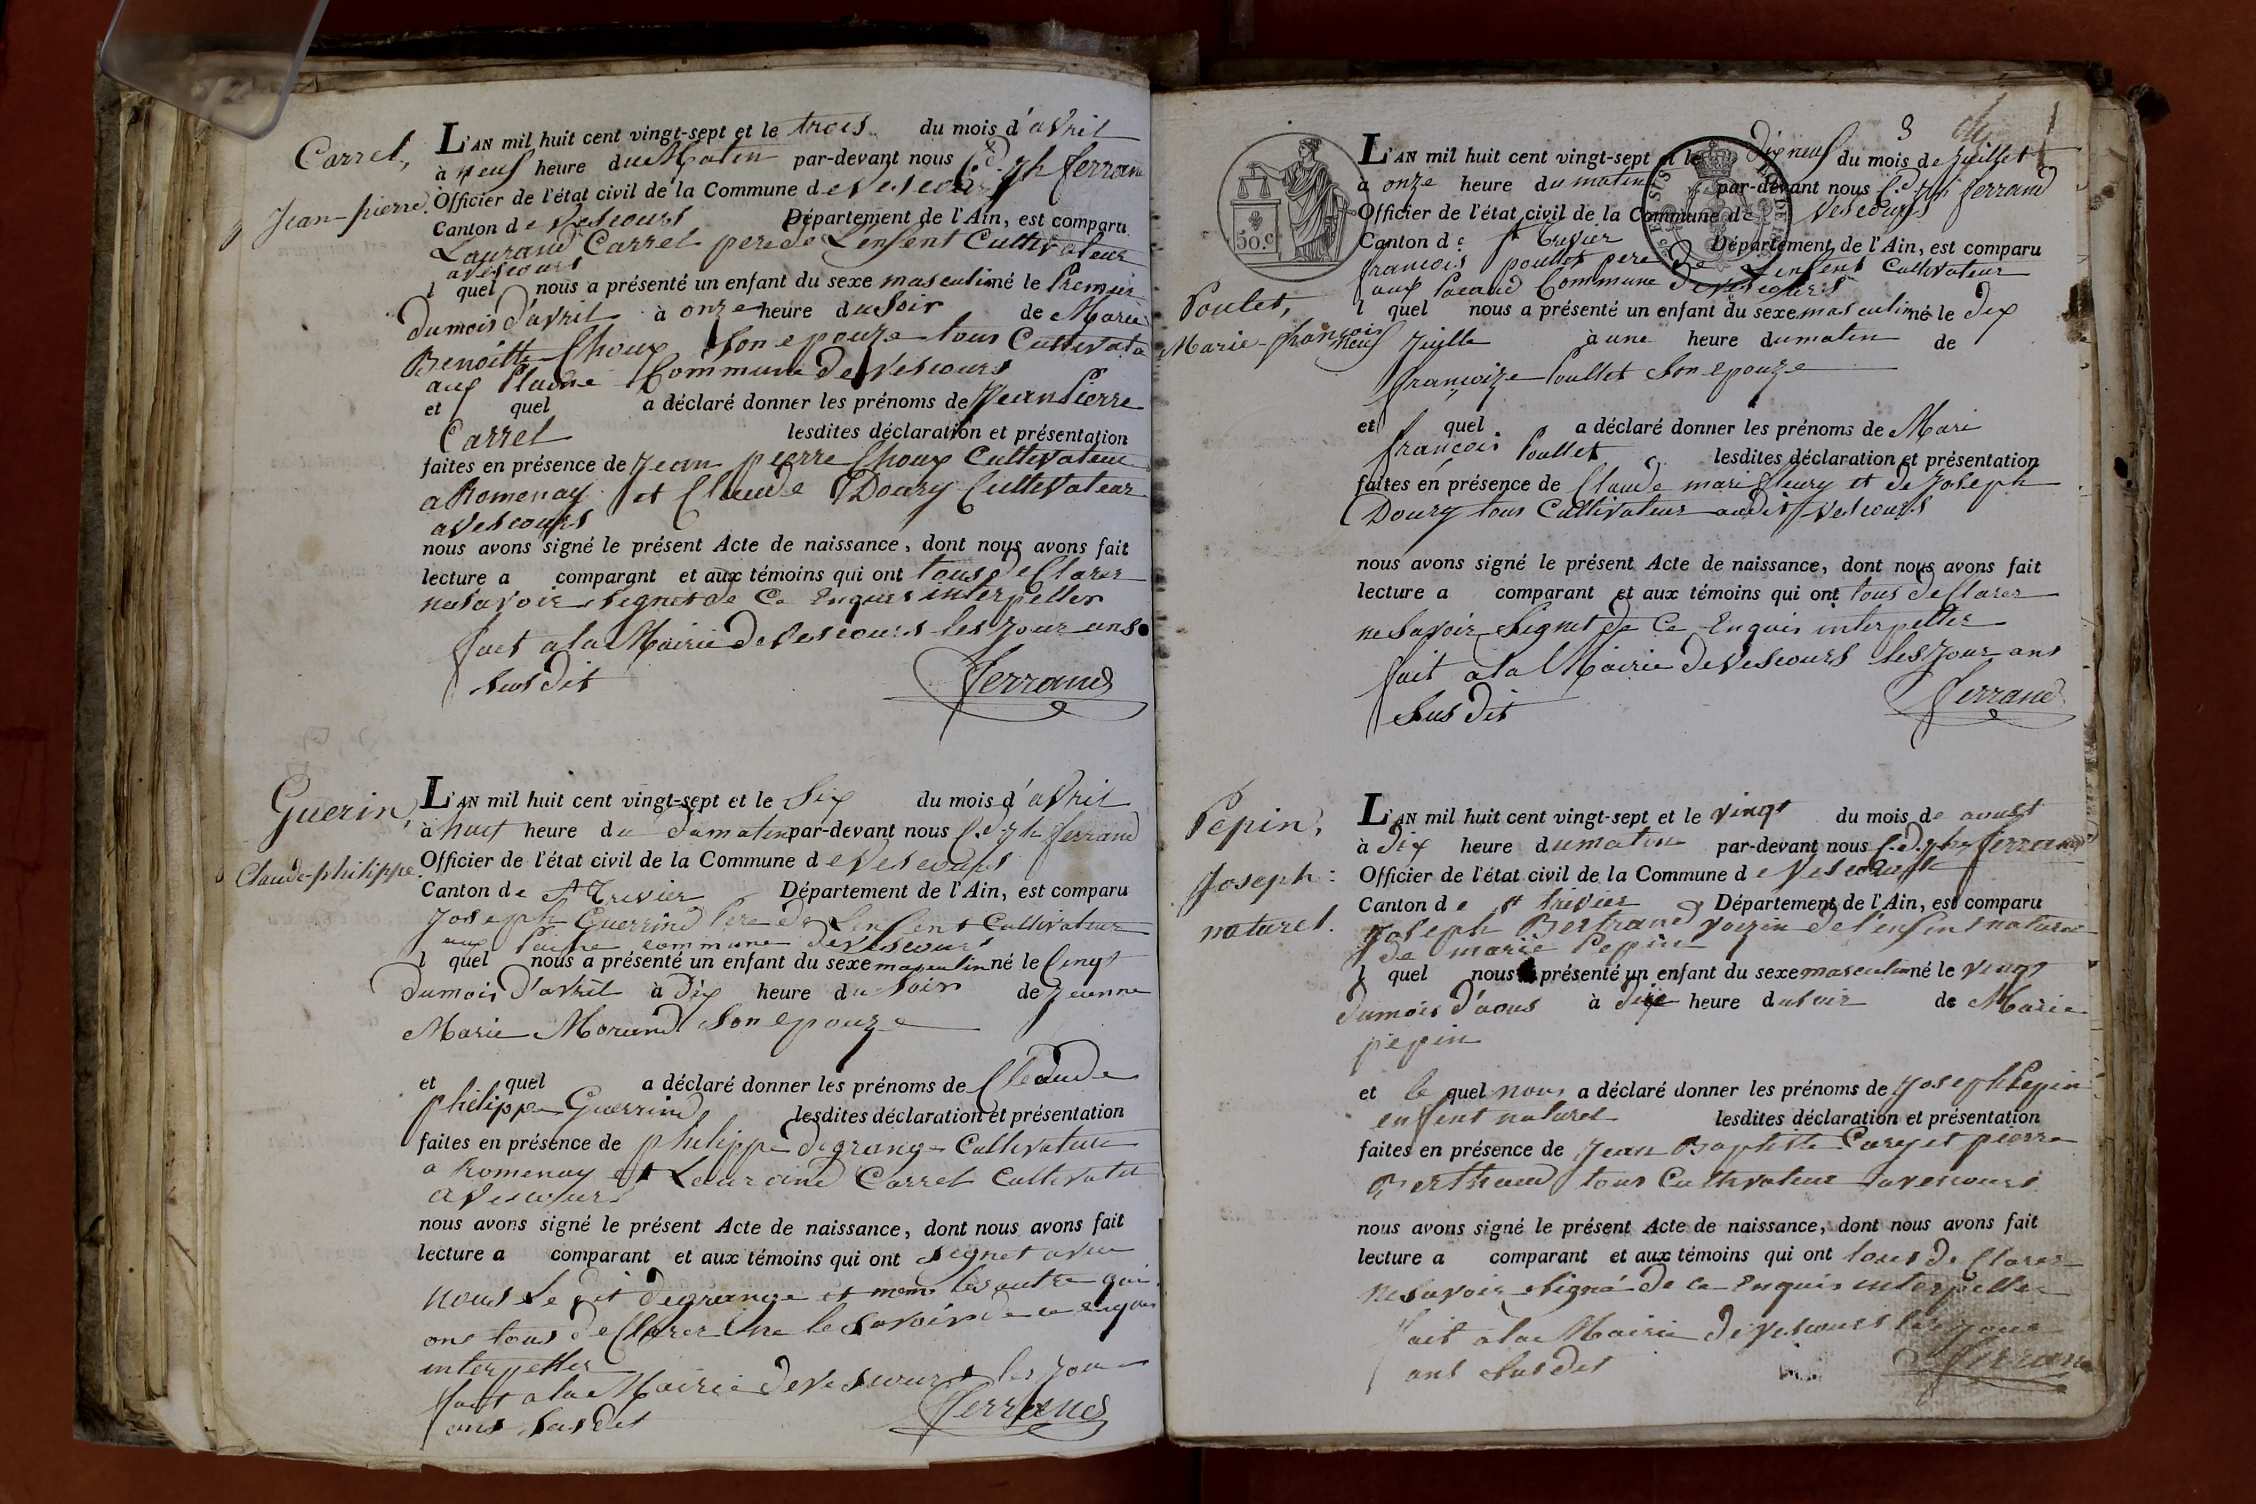 Carrel,
Jean-pierre.
L'AN mil huit cent vingt-sept et le trois du mois d'avril
à neuf heure du Matin par-devant nous C.d jh ferrand
Officier de l'état civil de la Commune de Vescours
Canton de Vescours Département de l'Ain, est comparu
Laurand Carrel pere de Lenfent Cultivateur
a vescours
l quel nous a présenté un enfant du sexe masculin né le Premier
du mois d'avril à onze heure du Soir de Marie
Benoitte Choux Son epouze tous Cultivate
aux Commune de Vescours
et quel a déclaré donner les prénoms de Jean Pierre
Carrel lesdites déclaration et présentation
faites en présence de Jean pierre Choux Cultivateur
a Romenay et Claude Doury Cultivateur
a Vescours
nous avons signé le présent Acte de naissance, dont nous avons fait
lecture a comparant et aux témoins qui ont tous de Clarer
ne Savoir Signet de Ce Enquis interpeller
fait a la Mairie de Vescours les Jour ans
Sus dit
Ferrand
Guerin,
Claude-philippe.
L'AN mil huit cent vingt-sept et le Six du mois d'avril
à huit heure du du matin par-devant nous C.d jh ferrand
Officier de l'état civil de la Commune de Vescours
Canton de St Trevier Département de l'Ain, est comparu
Joseph Guerrind Père de Lenfent Cultivateur
aux commune de vescours
l quel nous a présenté un enfant du sexe masculin né le Cinqt
du mois d'avril à Dix heure du soir de Jeanne
Marie Morand Son epouze
et quel a déclaré donner les prénoms de Claude
philippe Guerrind lesdites déclaration et présentation
faites en présence de philippe degrange Cultivateur
a Romenay et Laurand Carrel Cultivateu
a Vescours
nous avons signé le présent Acte de naissance, dont nous avons fait
lecture a comparant et aux témoins qui ont Signet avec
nous Le dit degrange et les autre qui
ont tous de Clarer ne le Savoir de ce enquis
interpeller
fait a la Mairie de Vescours les Jour
ans Sus dit
Ferrand
3
50.c
Poulet,
Marie-françois
L'AN mil huit cent vingt-sept et le dix neuf du mois de Juillet
à onze heure du matin par-devant nous C.d jh ferrand
Officier de l'état civil de la Commune de Vescours
Canton de St Trevier Département de l'Ain, est comparu
francois poullet pere de Lenfent Cultivateur
aux Pacaud Commune de Vescours
l quel nous a présenté un enfant du sexe masculin né le dix
neuf Juille à une heure du matin de
françoize Poullet Son epouze
et quel a déclaré donner les prénoms de Mari
françois Poullet lesdites déclaration et présentation
faites en présence de Claude mari fleury et de Joseph
Doury tous Cultivateur audit Vescours
nous avons signé le présent Acte de naissance, dont nous avons fait
lecture a comparant et aux témoins qui ont tous de Clarer
ne Savoir Signet de Ce Enquis interpeller
fait a la Mairie de Vescours les Jour ans
Sus dit
ferrand
Pepin,
Joseph:
naturel.
L'AN mil huit cent vingt-sept et le vingt du mois de aoust
à Dix heure du matin par-devant nous C.d jh ferrand
Officier de l'état civil de la Commune de Vescours
Canton de St trivier Département de l'Ain, est comparu
Joseph Bertrand voizin de l'enfent naturel
de marie Pepin
l quel nous a présenté un enfant du sexe masculin né le vingt
du mois d'aous à heure du soir de Marie
pepin
et le quel nous a déclaré donner les prénoms de Joseph Pepin
enfent naturel lesdites déclaration et présentation
faites en présence de Jean Baptiste Carry et pierre
Berthaud tous Cultivateur a vescours
nous avons signé le présent Acte de naissance, dont nous avons fait
lecture a comparant et aux témoins qui ont tous de Clarer
ne Savoir Signé de Ce Enquis interpeller
fait a la Mairie de Vescours les Jour
ans Sus dit
Ferrand